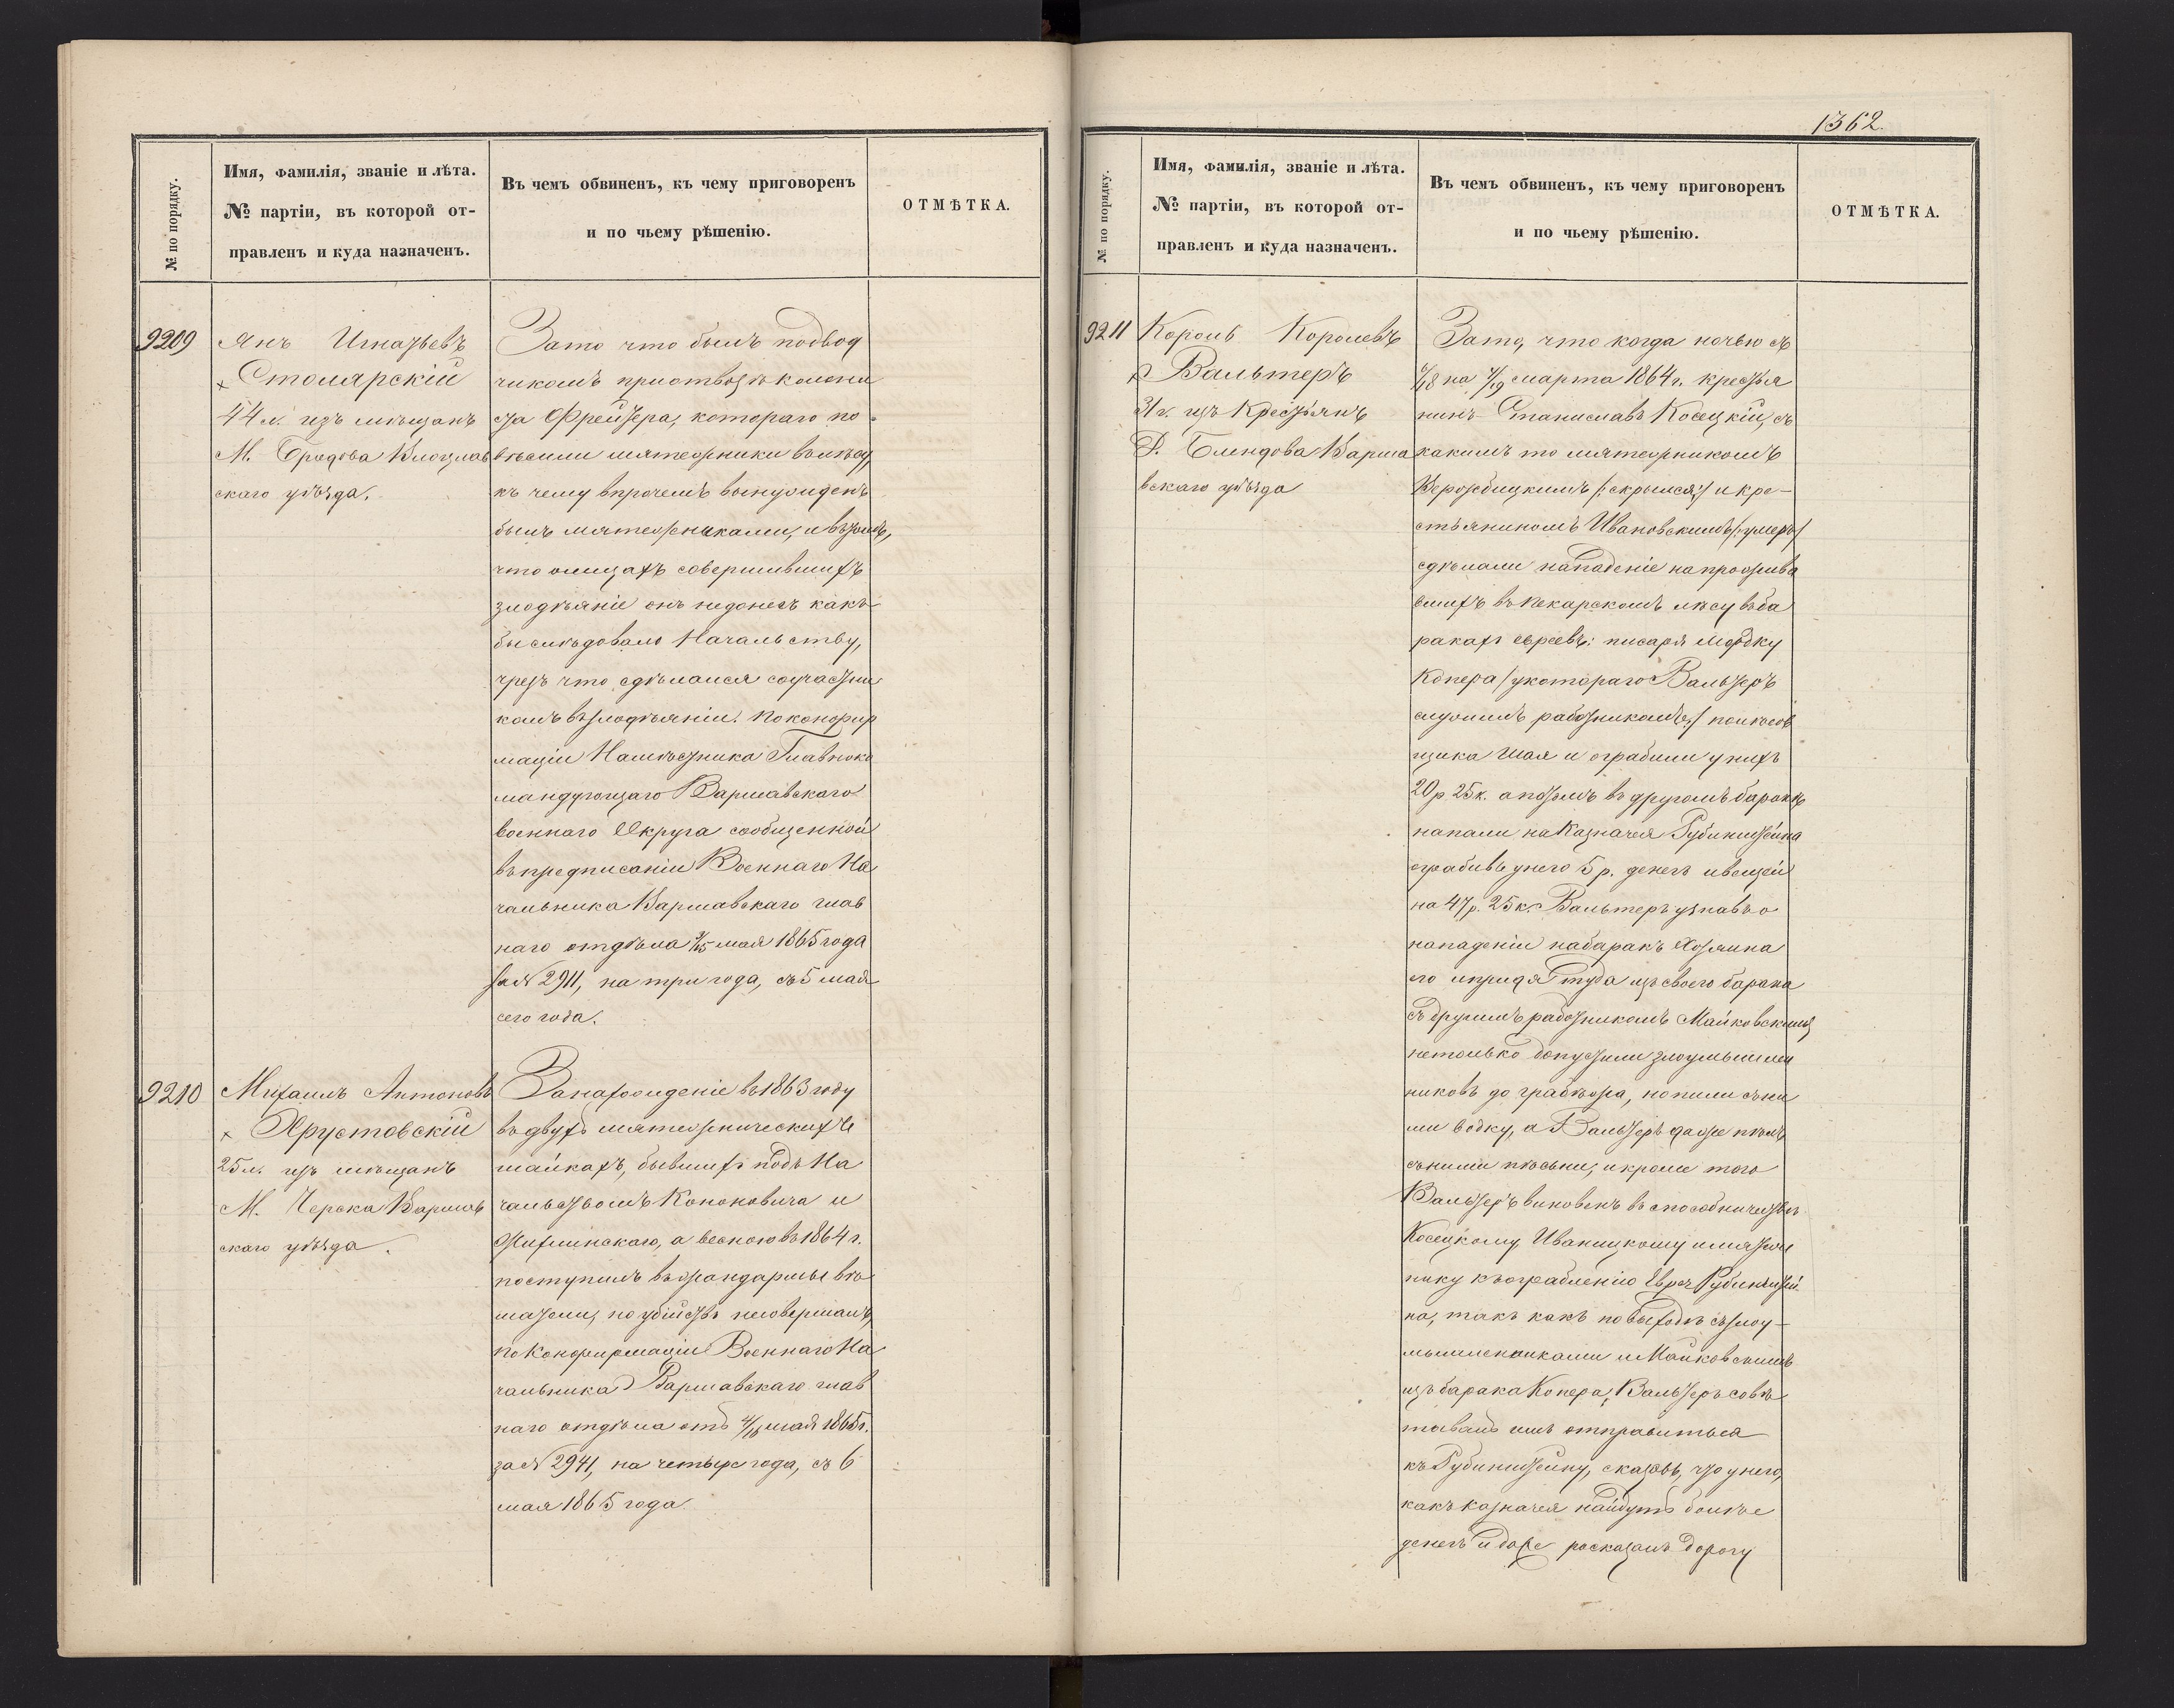 № по порядку.
Имя, фамилія, званіе и лѣта.
№ партіи, въ которой от-
правленъ и куда назначенъ.
Въ чемъ обвиненъ, къ чему приговоренъ
и по чьему рѣшенію.
ОТМѢТКА.
9209
Янъ Игнатьевъ
× Столярскій
44 л. изъ мѣщанъ
М. Брудова Влоцлав
скаго уѣзда.
Зато что былъ подвод
чикомъ приотвозѣ колони
ста Фрейтера, котораго по-
вѣсили мятежники вълѣсу,
къ чему впрочемъ вынужденъ
былъ мятежниками, и въ томъ,
что олицахъ совершившихъ
злодѣяніе онъ недонесъ какъ
бы слѣдовало Начальству,
чрезъ что сдѣлался соучастни
комъ възлодѣяніи. По конфир
маціи Намѣстника Главноко
мандующаго Варшавскаго
военнаго Округа сообщенной
въ предписаніи Военнаго На
чальника Варшавскаго глав
наго отдѣла 3/15 мая 1865 года
за № 2911, на три года, съ 5 мая
сего года.
9210
Михаилъ Антоновъ
× Хрустовскій
25 л. изъ мѣщанъ
М. Черска Варшав
скаго уѣзда.
Занахожденіе въ 1863 году
въ двухъ мятежническихъ
шайкахъ, бывшихъ подъ На
чальствомъ Кононовича и
Жихлинскаго, а весною въ 1864 г.
поступилъ въ жандармы вѣ
шатели, но убійствъ несовершалъ,
по Конфирмаціи Военнаго На
чальника Варшавскаго глав
наго отдѣла отъ 4/16 мая 1865 г.
за № 2941, на четыре года, съ 6
мая 1865 года.
1362.
№ по порядку.
Имя, фамилія, званіе и лѣта.
№ партіи, въ которой от-
правленъ и куда назначенъ.
Въ чемъ обвиненъ, къ чему приговоренъ
и по чьему рѣшенію.
ОТМѢТКА.
9211
Кароль Каролевъ
× Вальтеръ
31 г. изъ Крестьянъ
Д. Блендова Варша
вскаго уѣзда
Зато, что когда ночью съ
6/18 на 7/19 марта 1864 г. крестья
нинъ Станиславъ Косецкій, съ
какимъ то мятежникомъ
Вержбицкимъ /:скрылся:/ и кре-
стьяниномъ Ивановскимъ /:умеръ/
сдѣлали нападеніе на прожива
вшихъ въ Пекарскомъ лѣсу въба
ракахъ евреевъ: писаря Мордку
Копера /у котораго Вальтеръ
служилъ работникомъ:/ полѣсов
щика Шая и ограбили у нихъ
20 р. 25 к. а потомъ въ другомъ баракѣ
напали на Казначея Рубинштейна
ограбивъ у него 5 р. денегъ и вещей
на 47 р. 25 к. Вальтеръ узнавъ о
нападеніи на баракъ Хозяина
его и придя туда изъ своего барака
съ другимъ работникомъ Майковскимъ
нетолько допустили злоумышлен
никовъ до грабежа, но пили съ ни
ми водку, а Вальтеръ даже пѣлъ
съ ними пѣсьни, и кромѣ того
Вальтеръ виновенъ въ способничествѣ
Косецкому, Иваницкому и мятеж
нику къ ограбленію Еврея Рубинштей-
на, такъ какъ по выходѣ съ злоу-
мышленниками и Майковскимъ
изъ барака Копера, Вальтеръ совѣ
товалъ имъ отправиться
къ Рубинштейну, сказавъ, что у него,
какъ казначея найдутъ болѣе
денегъ и даже росказалъ дорогу